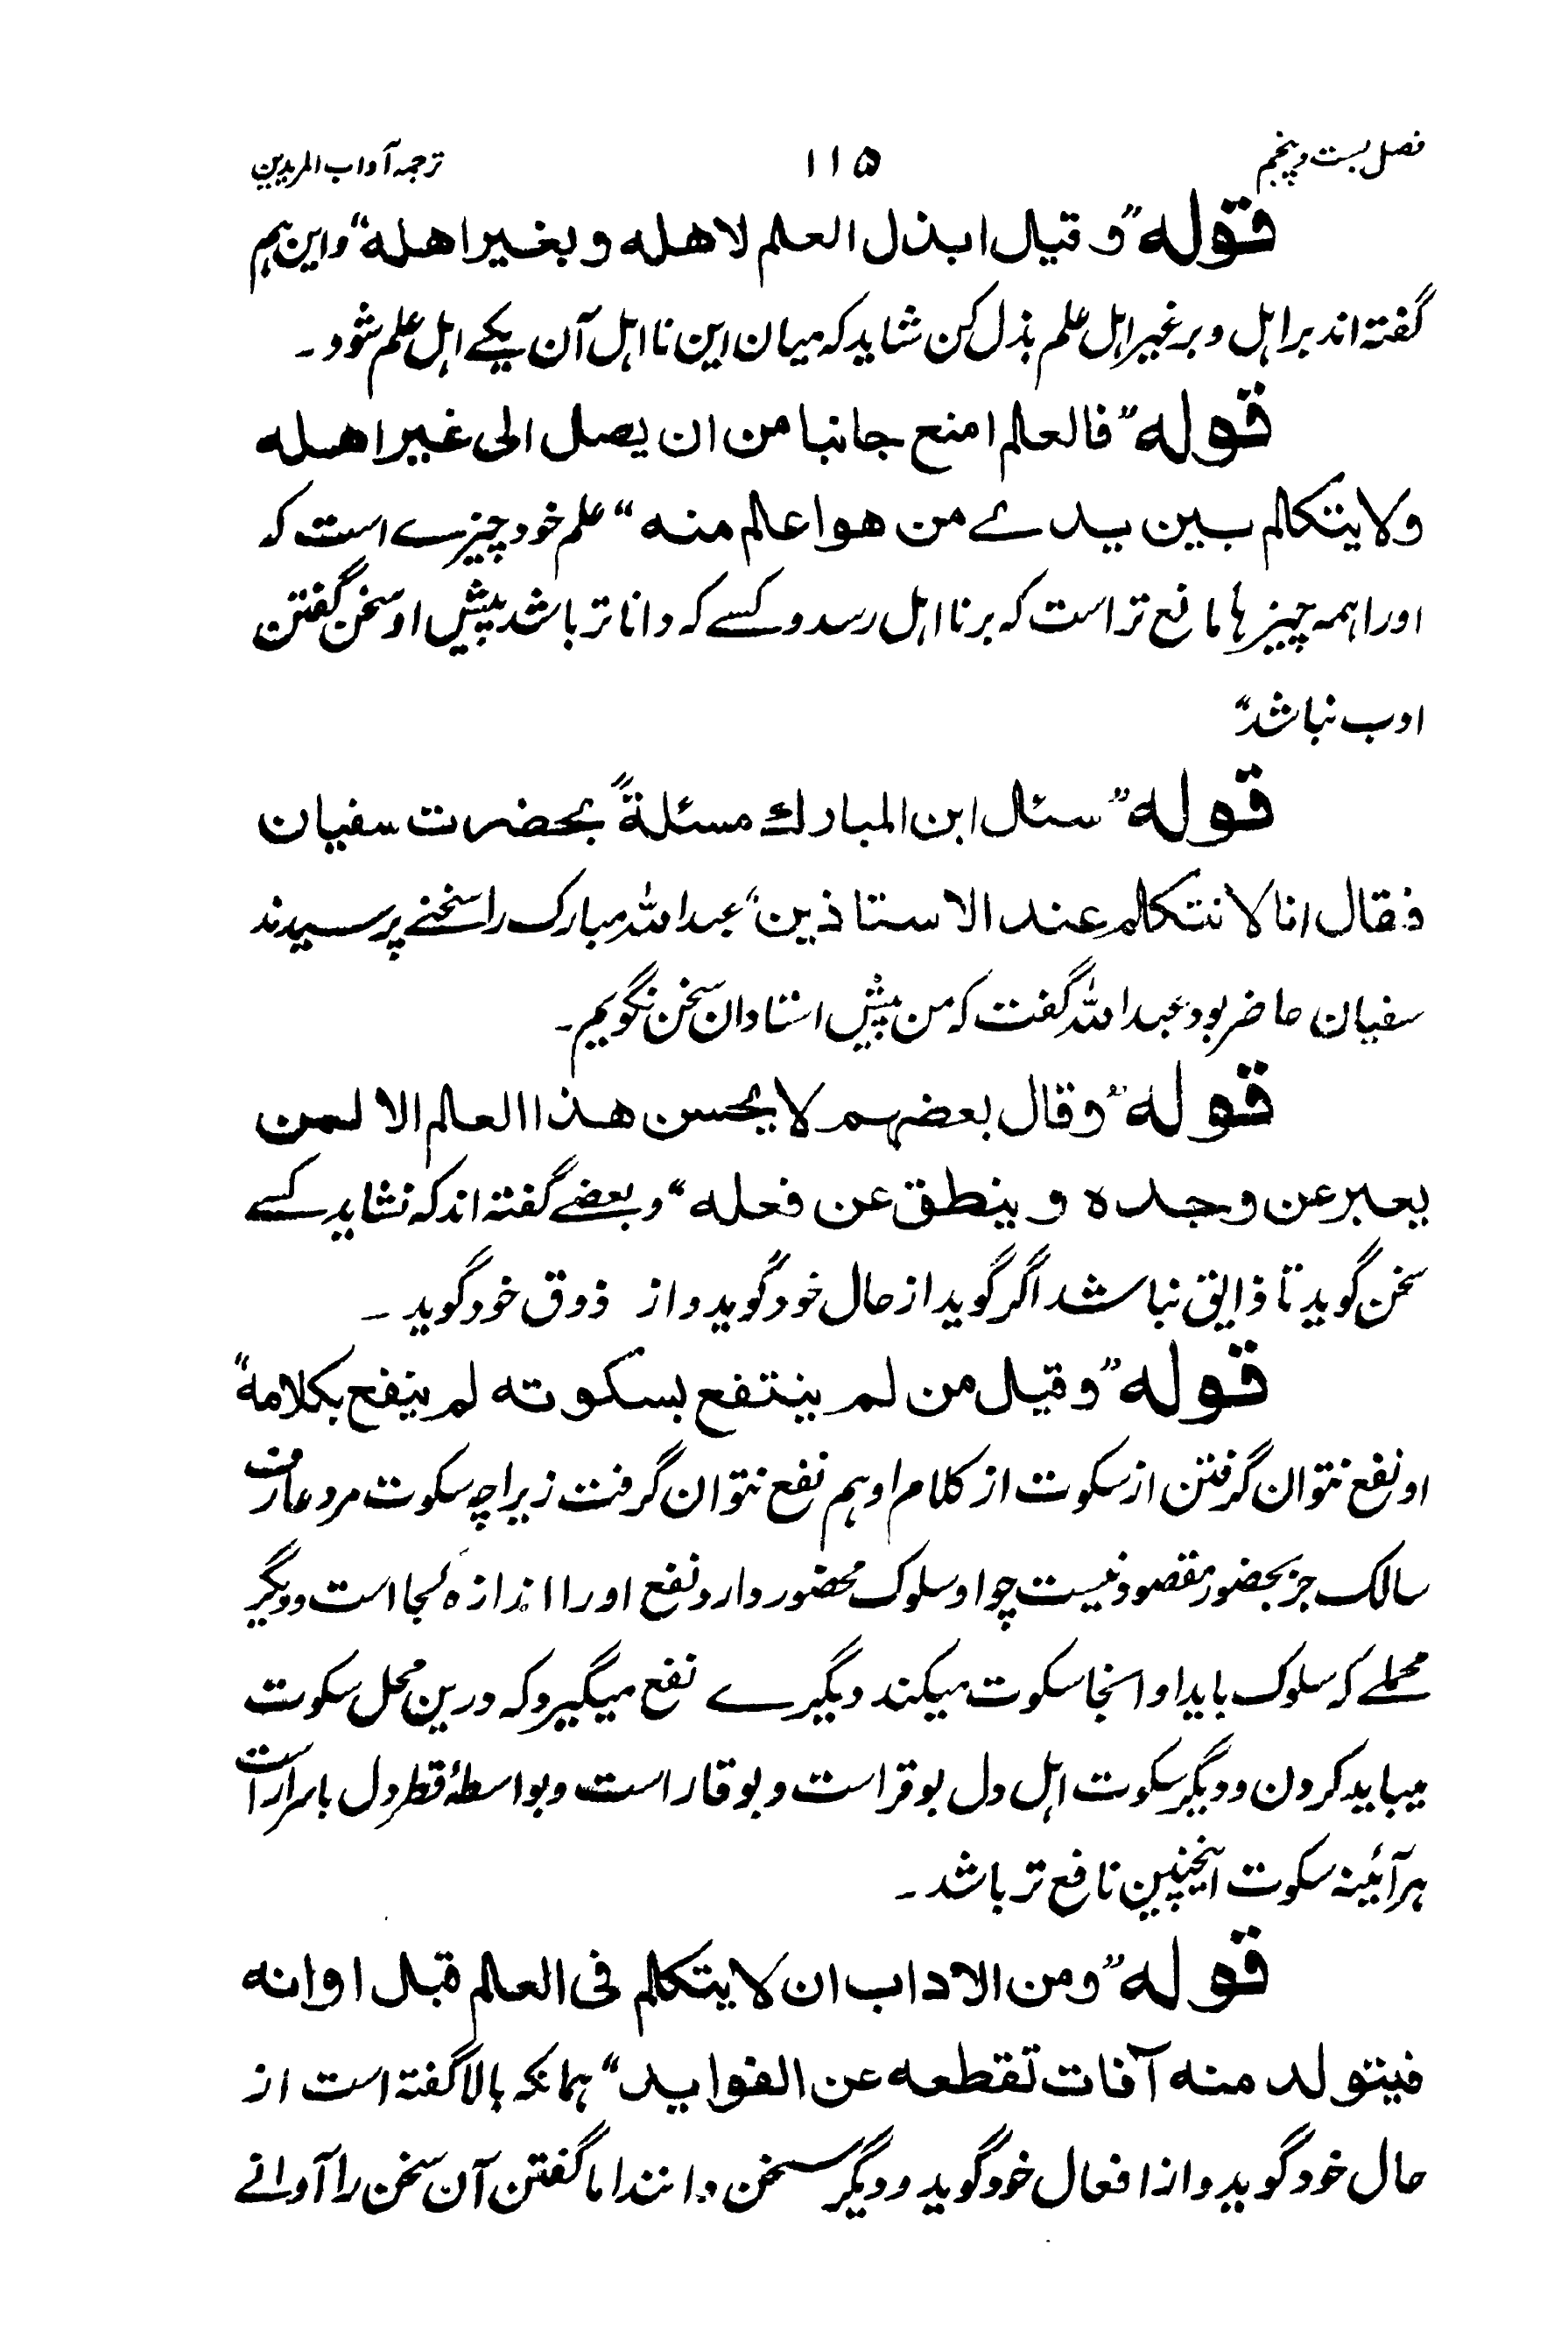 فصل بست و پنجم ۱۱۵ ترجمہ آداب المریدین
قوله "و قیل ابذل العلم لاهله و بغیر اهله" و این ہم
گفتہ اند بر اہل و بر غیر اہل علم بذل کن شاید کہ میان این نا اہل آن یکے اہل علم شود۔
قوله "فالعلم امنع جانبا من ان یصل الی غیر اهله
ولا یتکلم بین یدے من هوا علم منه" علم خود چیزے است کہ
اورا ہمہ چیز ہا مانع تر است کہ بر نا اہل رسد و کسے کہ دانا تر باشد پیش او سخن گفتن
ادب نباشد"
قوله "سئل ابن المبارك مسئلةً بحضرت سفیان
فقال انا لا نتکلم عند الاستاذین" عبداللہ مبارک را سخنے پرسیدند
سفیان حاضر بود عبداللہ گفت کہ من پیش استادان سخن نگویم۔
قوله "وقال بعضهم لا یحسن هذا العلم الا لمن
یعبر عن وجده و ینطق عن فعله" و بعضے گفتہ اند کہ نشاید کسے
سخن گوید تا ذائق نباشد اگر گوید از حال خود گوید و از ذوق خود گوید ۔
قوله "و قیل من لم ینتفع بسکوته لم ینفع بکلامه"
او نفع نتوان گرفتن از سکوت از کلام او ہم نفع نتوان گرفت زیرا چہ سکوت مرد عارف
سالک جز بحضور مقصود نیست چو او سلوک محضور دارد نفع اورا اندازہ کجا است و دیگر
محلے کہ سلوک باید او اسنجا سکوت میکند دیگرے نفع میگیرد کہ درین محل سکوت
میباید کردن و دیگر سکوت اہل دل بوقر است و بوقار است و بواسطۂ قطر دل با سرار است
ہر آئینہ سکوت اینچنین نافع تر باشد۔
قوله "ومن الاداب ان لا یتکلم فی العلم قبل اوانه
فیتولد منه آفات تقطعه عن الفواید" ہمانکہ بالا گفتہ است از
حال خود گوید و از افعال خود گوید و دیگر سخن دانند اما گفتن آن سخن را آوانے